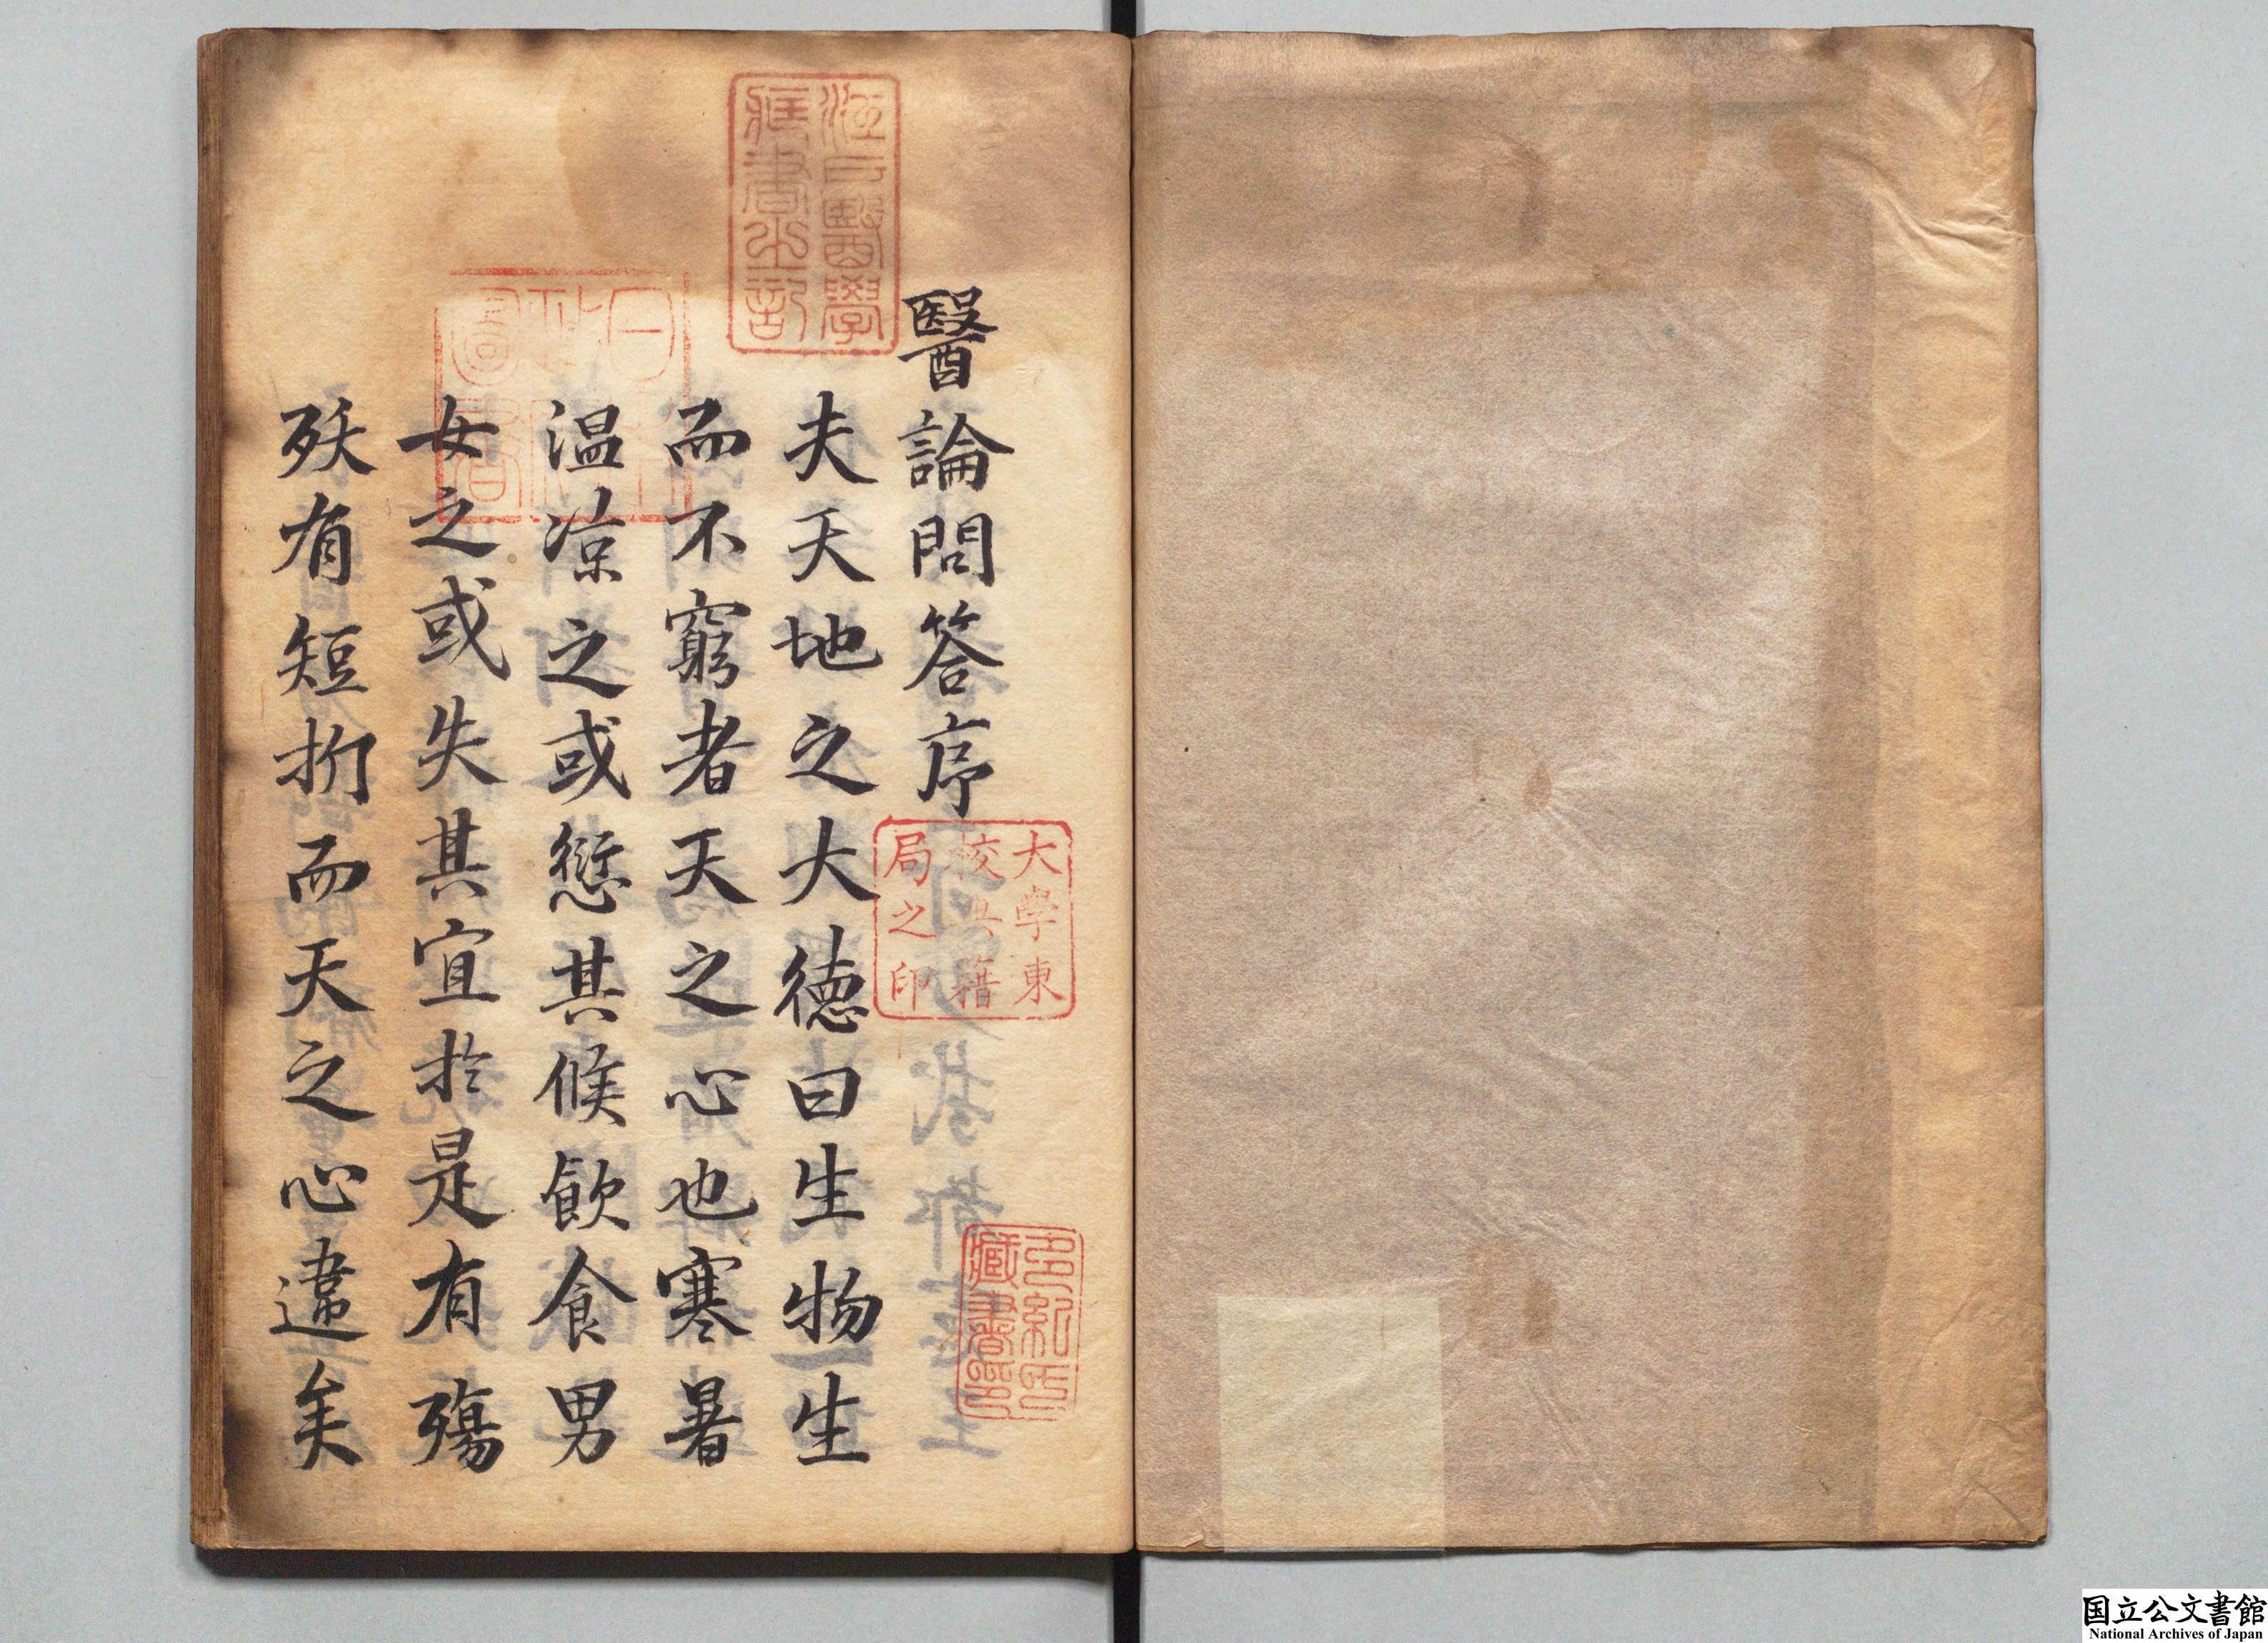 醫論問答序
夫天地之大德曰生生物生
而不窮者天之心也寒暑
温凉之或愆其候飲食男
女之或失其宜扵是有殤
殀有短折而天之心違矣
江戸醫學
藏書之記
日本
政府
圖書
大學東
校典籍
局之印
多紀氏
藏書印
国立公文書館
National Archives of Japan